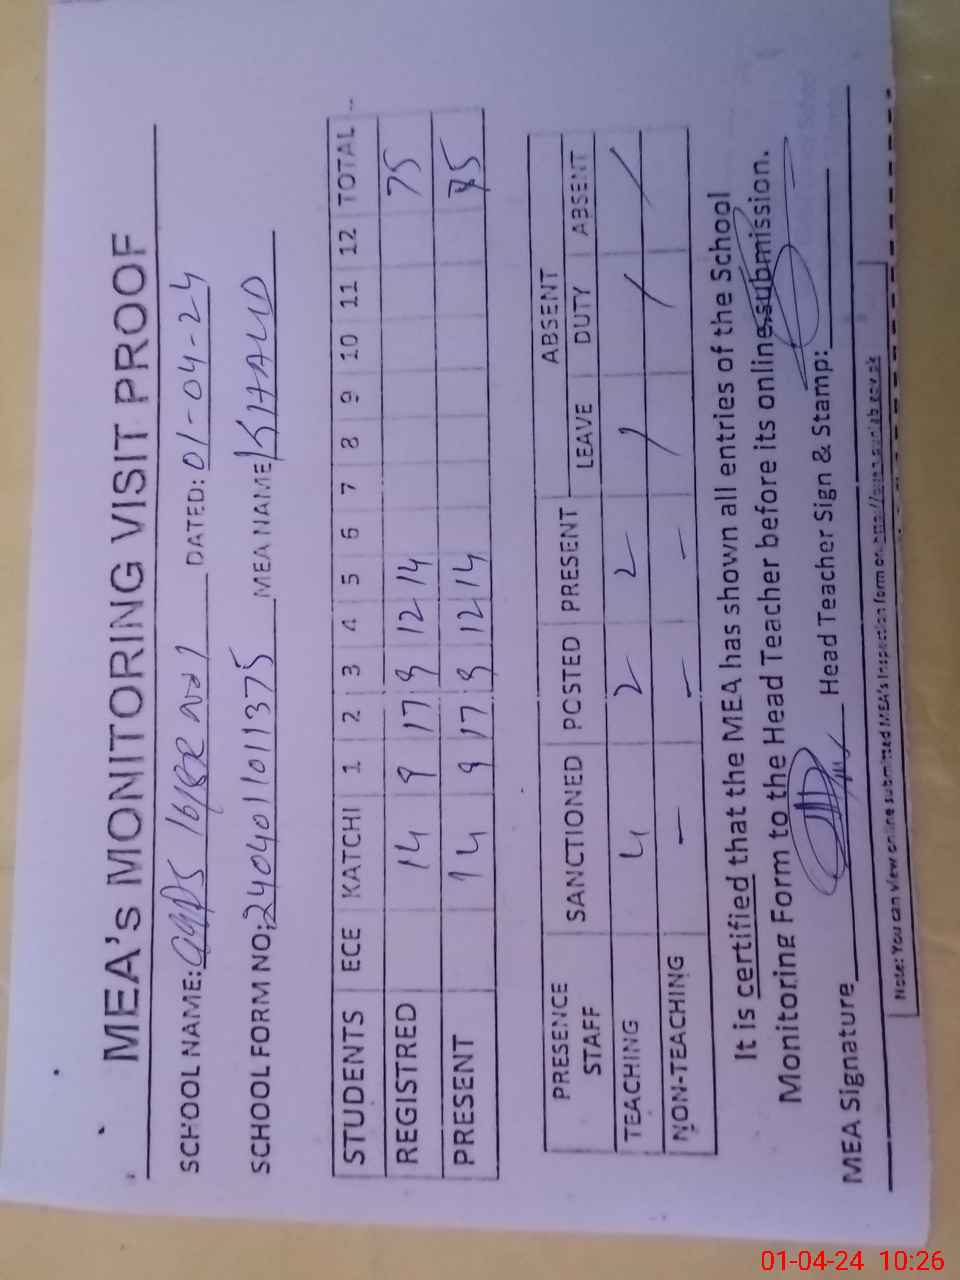 MEA's MONITORING VISIT PROOF
SCHOOL NAME: DATED: 01-04-24
SCHOOL FORM NO: 2404011011375 MEA NAME KHALID
STUDENTS ECE KATCHI 1 2 3 4 5 6 7 8 9 10 11 12 TOTAL
REGISTRED 14 9 17 9 12 14 75
PRESENT 14 9 17 9 12 14 75
PRESENCE STAFF SANCTIONED POSTED PRESENT ABSENT
LEAVE DUTY ABSENT
TEACHING 4 2 2 / / /
NON-TEACHING - - - / / /
It is certified that the MEA has shown all entries of the School
Monitoring Form to the Head Teacher before its online submission.
MEA Signature Head Teacher Sign & Stamp:
Note: You can view online submitted MEA's Inspection form on
01-04-24 10:26